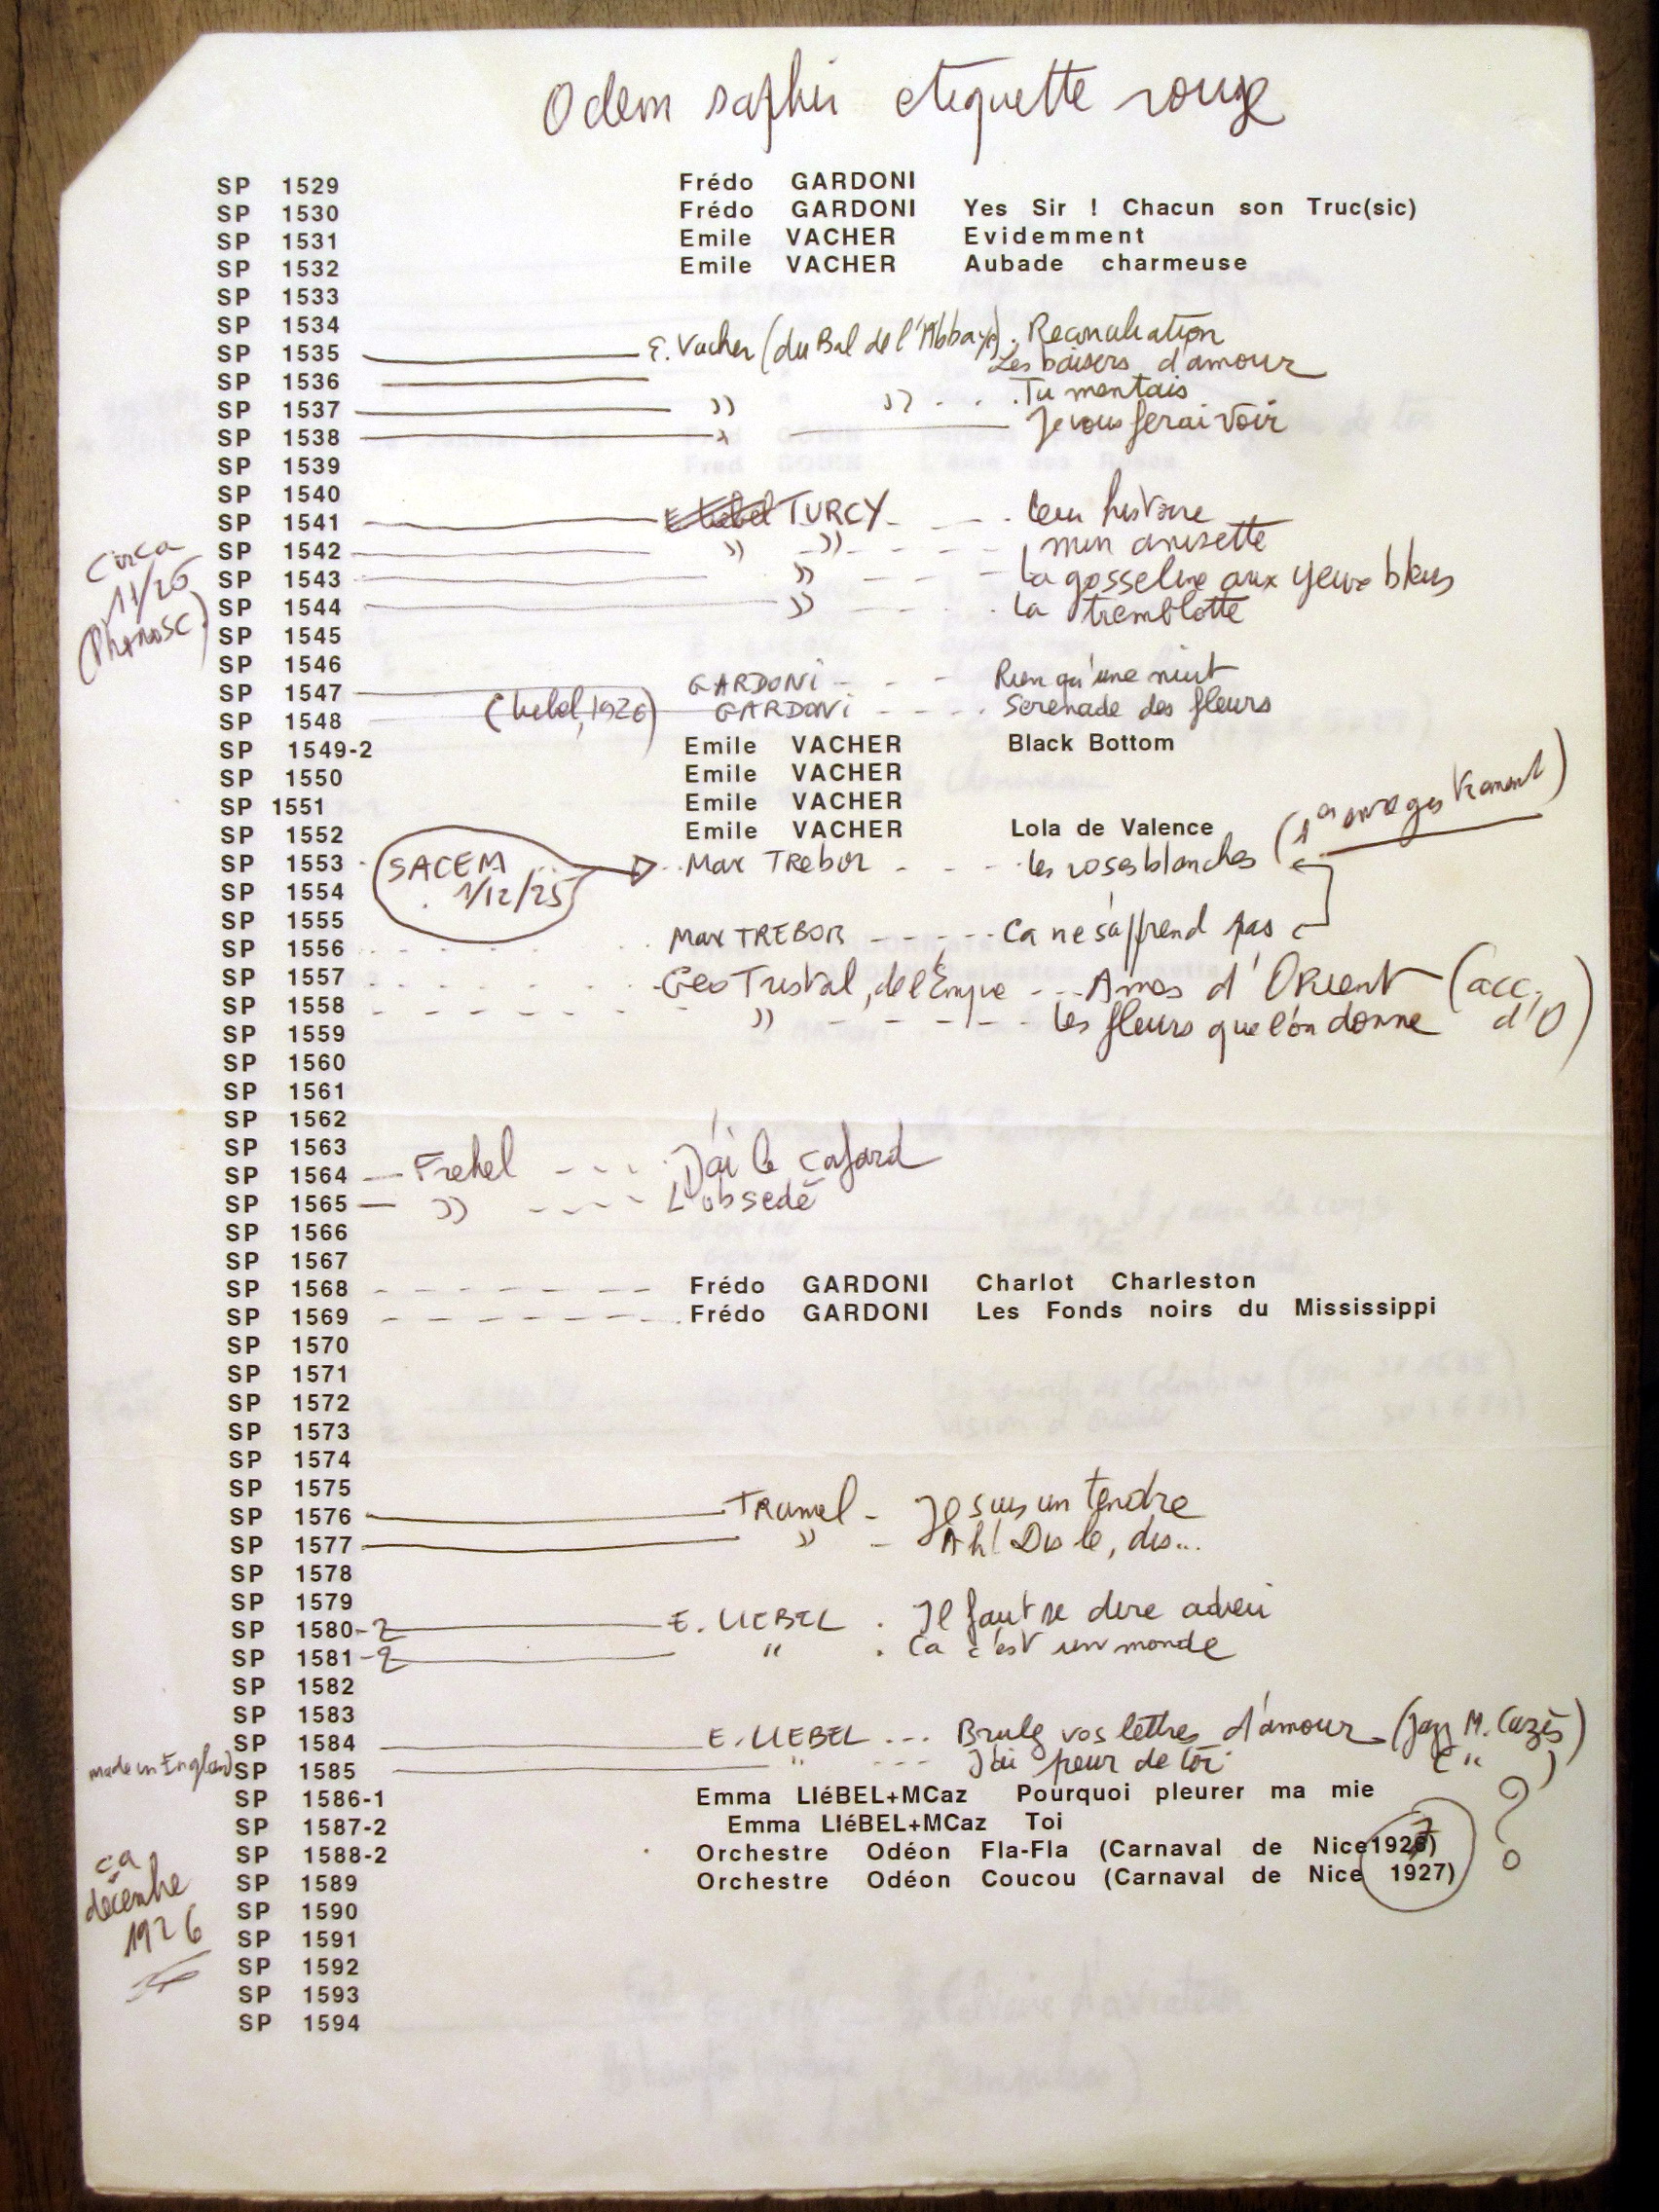 Odeon saphir etiquette rouge
SP 1529 Frédo GARDONI
SP 1530 Frédo GARDONI Yes Sir ! Chacun son Truc(sic)
SP 1531 Emile VACHER Evidemment
SP 1532 Emile VACHER Aubade charmeuse
SP 1533
SP 1534
SP 1535 E. Vacher (du Bal de l'Abbaye). Reconciliation
SP 1536 Les baisers d'amour
SP 1537 " " . . . Tu mentais
SP 1538 " Je vous ferai voir
SP 1539
SP 1540
SP 1541 TURCY - - - histoire
SP 1542 " " - - - - mon anisette
SP 1543 " - - - La gosseline aux yeux bleus
SP 1544 " - - - . La tremblotte
circa
11/26
(Phonosc.)
SP 1545
SP 1546
SP 1547 GARDONI - - - Rien qu'une nuit
SP 1548 (label, 1926) GARDONI - - - . Serenade des fleurs
SP 1549-2 Emile VACHER Black Bottom
SP 1550 Emile VACHER
SP 1551 Emile VACHER
SP 1552 Emile VACHER Lola de Valence
SP 1553 SACEM 1/12/25 Max TRebor - - - les roses blanches (1er enregistrement)
SP 1554
SP 1555
SP 1556 Max TREBOR - - - - - Ca ne s'apprend pas
SP 1557 Geo Tristal, de l'Empire - - - Amos d'Orient (acc. d'O)
SP 1558 " - - - - - Les fleurs que l'on donne
SP 1559
SP 1560
SP 1561
SP 1562
SP 1563
SP 1564 — Frehel - - - J'ai le cafard
SP 1565 — " - - - - L'obsedé
SP 1566
SP 1567
SP 1568 Frédo GARDONI Charlot Charleston
SP 1569 Frédo GARDONI Les Fonds noirs du Mississippi
SP 1570
SP 1571
SP 1572
SP 1573
SP 1574
SP 1575
SP 1576 TRamel - Je suis un tendre
SP 1577 " - Ah! Dis le, dis...
SP 1578
SP 1579
SP 1580-2 E. LIEBEL . Il faut se dire adieu
SP 1581-2 " . Ca c'est un monde
SP 1582
SP 1583
SP 1584 E. LIEBEL ... Brulez vos lettres d'amour (Jazz M. Cazès)
made in England SP 1585 " - - - J'ai peur de toi (")
SP 1586-1 Emma LIéBEL+MCaz Pourquoi pleurer ma mie
SP 1587-2 Emma LIéBEL+MCaz Toi
SP 1588-2 Orchestre Odéon Fla-Fla (Carnaval de Nice1927) ?
SP 1589 Orchestre Odéon Coucou (Carnaval de Nice 1927)
ca
décembre
1926
SP 1590
SP 1591
SP 1592
SP 1593
SP 1594